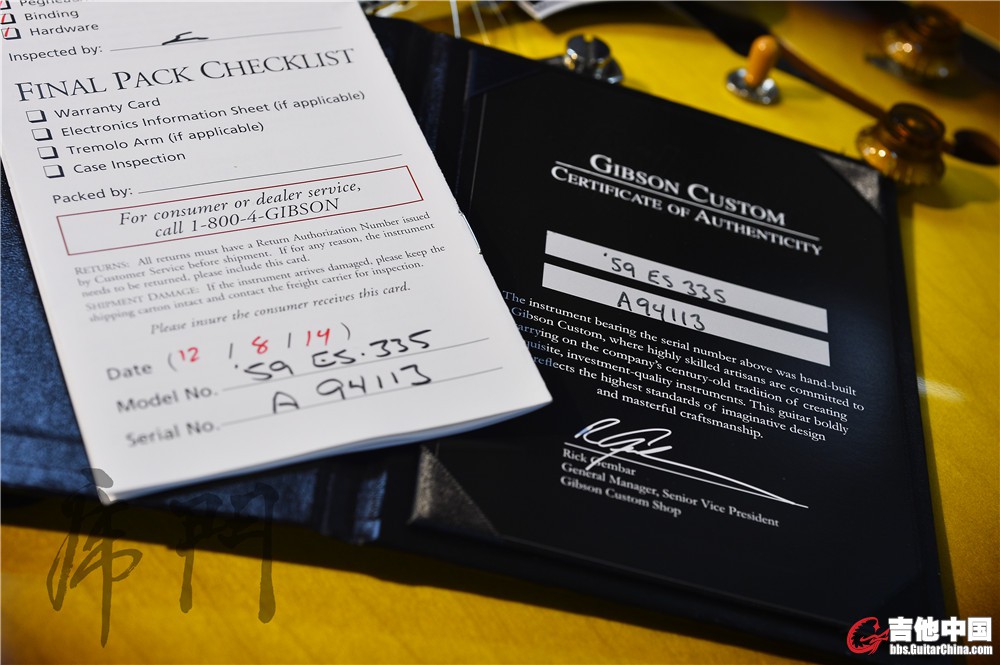 Binding
Hardware
Inspected by:
FINAL PACK CHECKLIST
Warranty Card
Electronics Information Sheet (if applicable)
Tremolo Arm (if applicable)
Case Inspection
Packed by:
For consumer or dealer service,
call 1-800-4-GIBSON
RETURNS: All returns must have a Return Authorization Number issued
by Customer Service before shipment. If for any reason, the instrument
needs to be returned, please include this card.
SHIPMENT DAMAGE: If the instrument arrives damaged, please keep the
shipping carton intact and contact the freight carrier for inspection.
Please insure the consumer receives this card.
Date (12 / 8 / 14)
Model No. '59 ES-335
Serial No. A 94113
GIBSON CUSTOM
CERTIFICATE OF AUTHENTICITY
'59 ES 335
A94113
The instrument bearing the serial number above was hand-built
Gibson Custom, where highly skilled artisans are committed to
carrying on the company's century-old tradition of creating
exquisite, investment-quality instruments. This guitar boldly
reflects the highest standards of imaginative design
and masterful craftsmanship.
Rick Gembar
General Manager, Senior Vice President
Gibson Custom Shop
吉他中国
bbs.GuitarChina.com